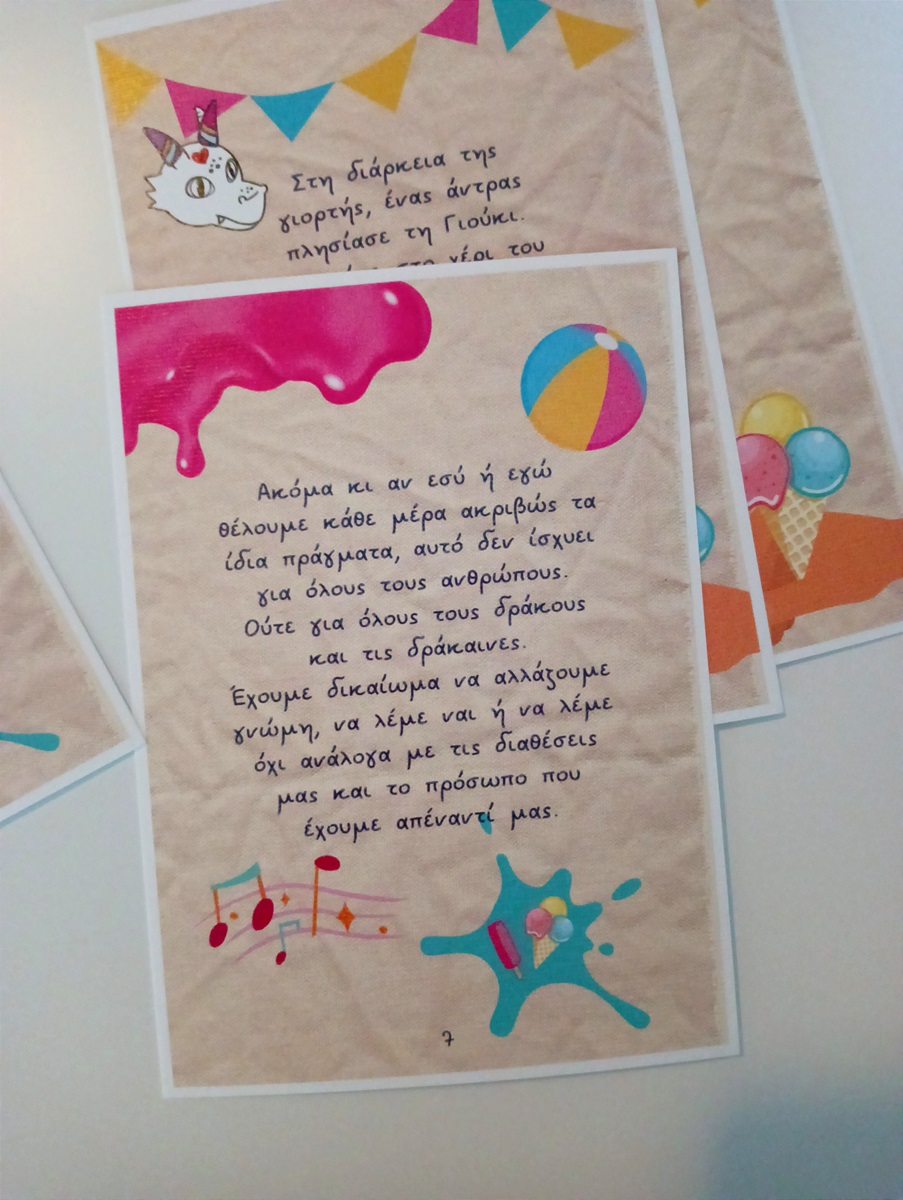 Στη διάρκεια της
γιορτής, ένας άντρας
πλησίασε τη Γιούκι.
στο χέρι του
Ακόμα κι αν εσύ ή εγώ
θέλουμε κάθε μέρα ακριβώς τα
ίδια πράγματα, αυτό δεν ίσχυει
για όλους τους ανθρώπους.
Ούτε για όλους τους δράκους
και τις δράκαινες.
Έχουμε δικαίωμα να αλλάζουμε
γνώμη, να λέμε ναι ή να λέμε
όχι ανάλογα με τις διαθέσεις
μας και το πρόσωπο που
έχουμε απέναντί μας.
7